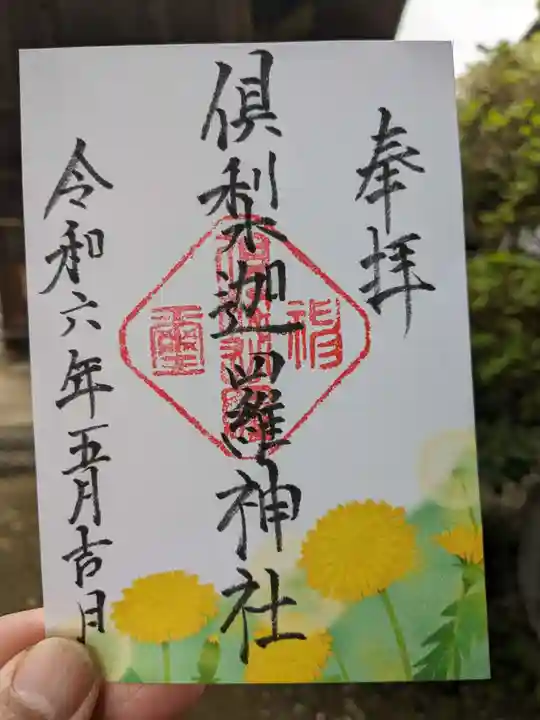 奉拝
倶梨迦羅神社
令和六年五月吉日